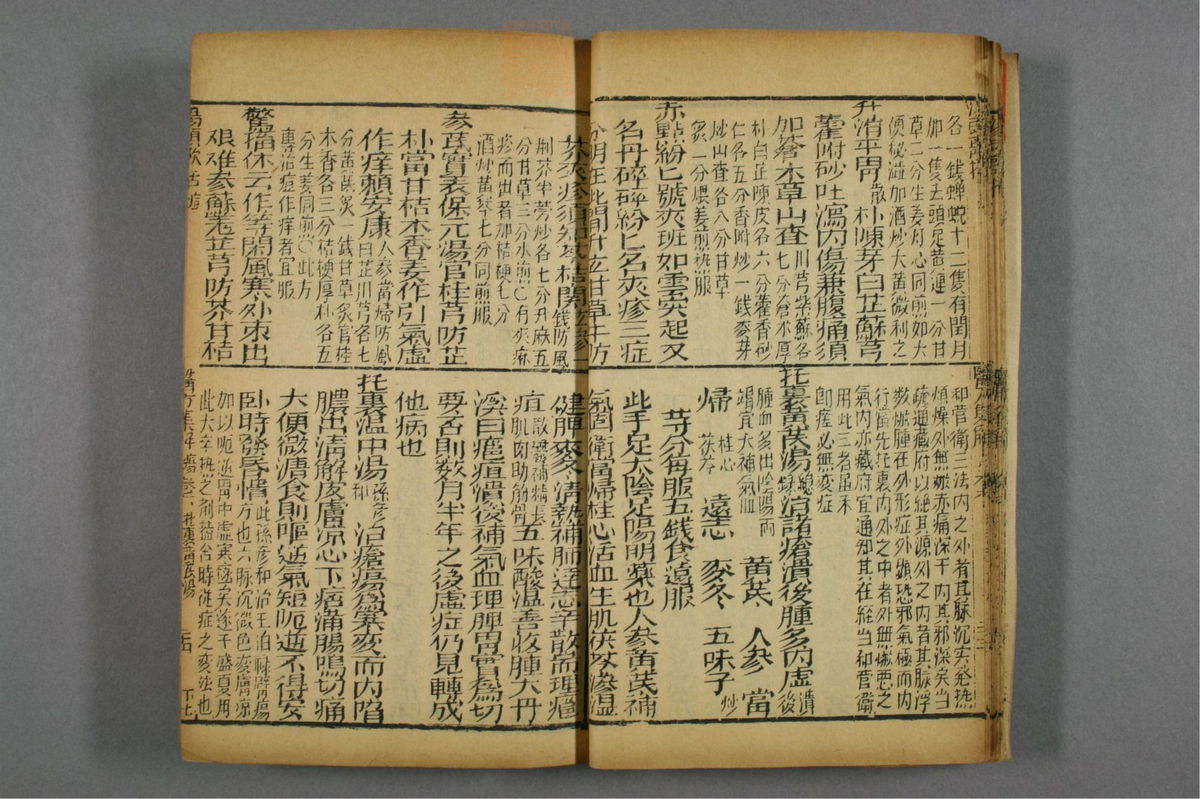 各一錢蟬蛻十二隻有閏月
加一隻去頭足黃連一分甘
草二分生姜灼心同前如大
便秘澁加酒炒大黃微利之
升消平胃散 朴陳芽白芷蘇芎
藿附砂吐瀉內傷兼腹痛須
加蒼朮草山查 川芎紫蘇各七分蒼朮厚
朴白芷陳皮各六分藿香砂
仁各五分香附炒一錢麥芽
炒山查各八分甘草
炙一分煨姜煎熱服
赤點紛匕號夾班如雲突起又
名丹碎碎紛匕名夾疹三症
分明在此間升立甘草牛防
芥夾疹須加芩桔閒 錢防風一
荆芥牛蒡炒各七分升麻五
分甘草三分水煎○有夾痲
疹而出者加桔梗七分
酒炒黃芩七分同煎服
參芪實表保元湯官桂芎防芷
朴當甘桔木香姜作引氣虛
作痒賴安康 人參當歸防風
白芷川芎各七
分黃芪炙一錢甘草炙官桂
木香各三分桔梗厚朴各五
分生姜同煎○此方
專治痘作痒者宜服
驚搐休云作等閑風寒外束出
艱难參蘇羌芷芎防芥甘桔
和菅衛三法內之外者其脉沉实発热
煩燥外無焮赤痛深于內其邪深矣当
疏通藏府以絕其源外之內者其脉浮
数焮腫在外形症外顕恐邪氣極而內
行當先托裏內外之中者外無焮悪之
氣內亦藏府宜通知其在経当和菅衛
用此三者虽未
即瘥必無変症
托裏黃芪湯 治諸瘡潰後腫多內虛 潰後
腫血多出陰陽兩
竭宜大補氣血
黃芪 人參 當
歸 桂心 茯苓 遠志 麥冬 五味子 炒
等分每服五錢食遠服
此手足太陰足陽明藥也人參黃芪補
氣固衛當歸桂心活血生肌茯苓滲濕
健脾麥冬清熱補肺遠志辛散而理癰
疽 五味酸溫善收腫大丹
溪曰癰疽潰後補氣血理脾胃實為切
要否則数月半年之後虛症仍見轉成
他病也
托裏溫中湯 孫彥和 治瘡瘍為寒変而內陷
膿出清解皮膚凉心下痞滿腸鳴切痛
大便微溏食則嘔逆氣短呃逆不得安
臥時發昏憒 此孫彥和治王伯祿臂瘍
方也六脉沉微色変膚凉
加以呃逆胃中虛寒極矣遂于盛夏用
此大辛热之剤盖舎時從症之変法也